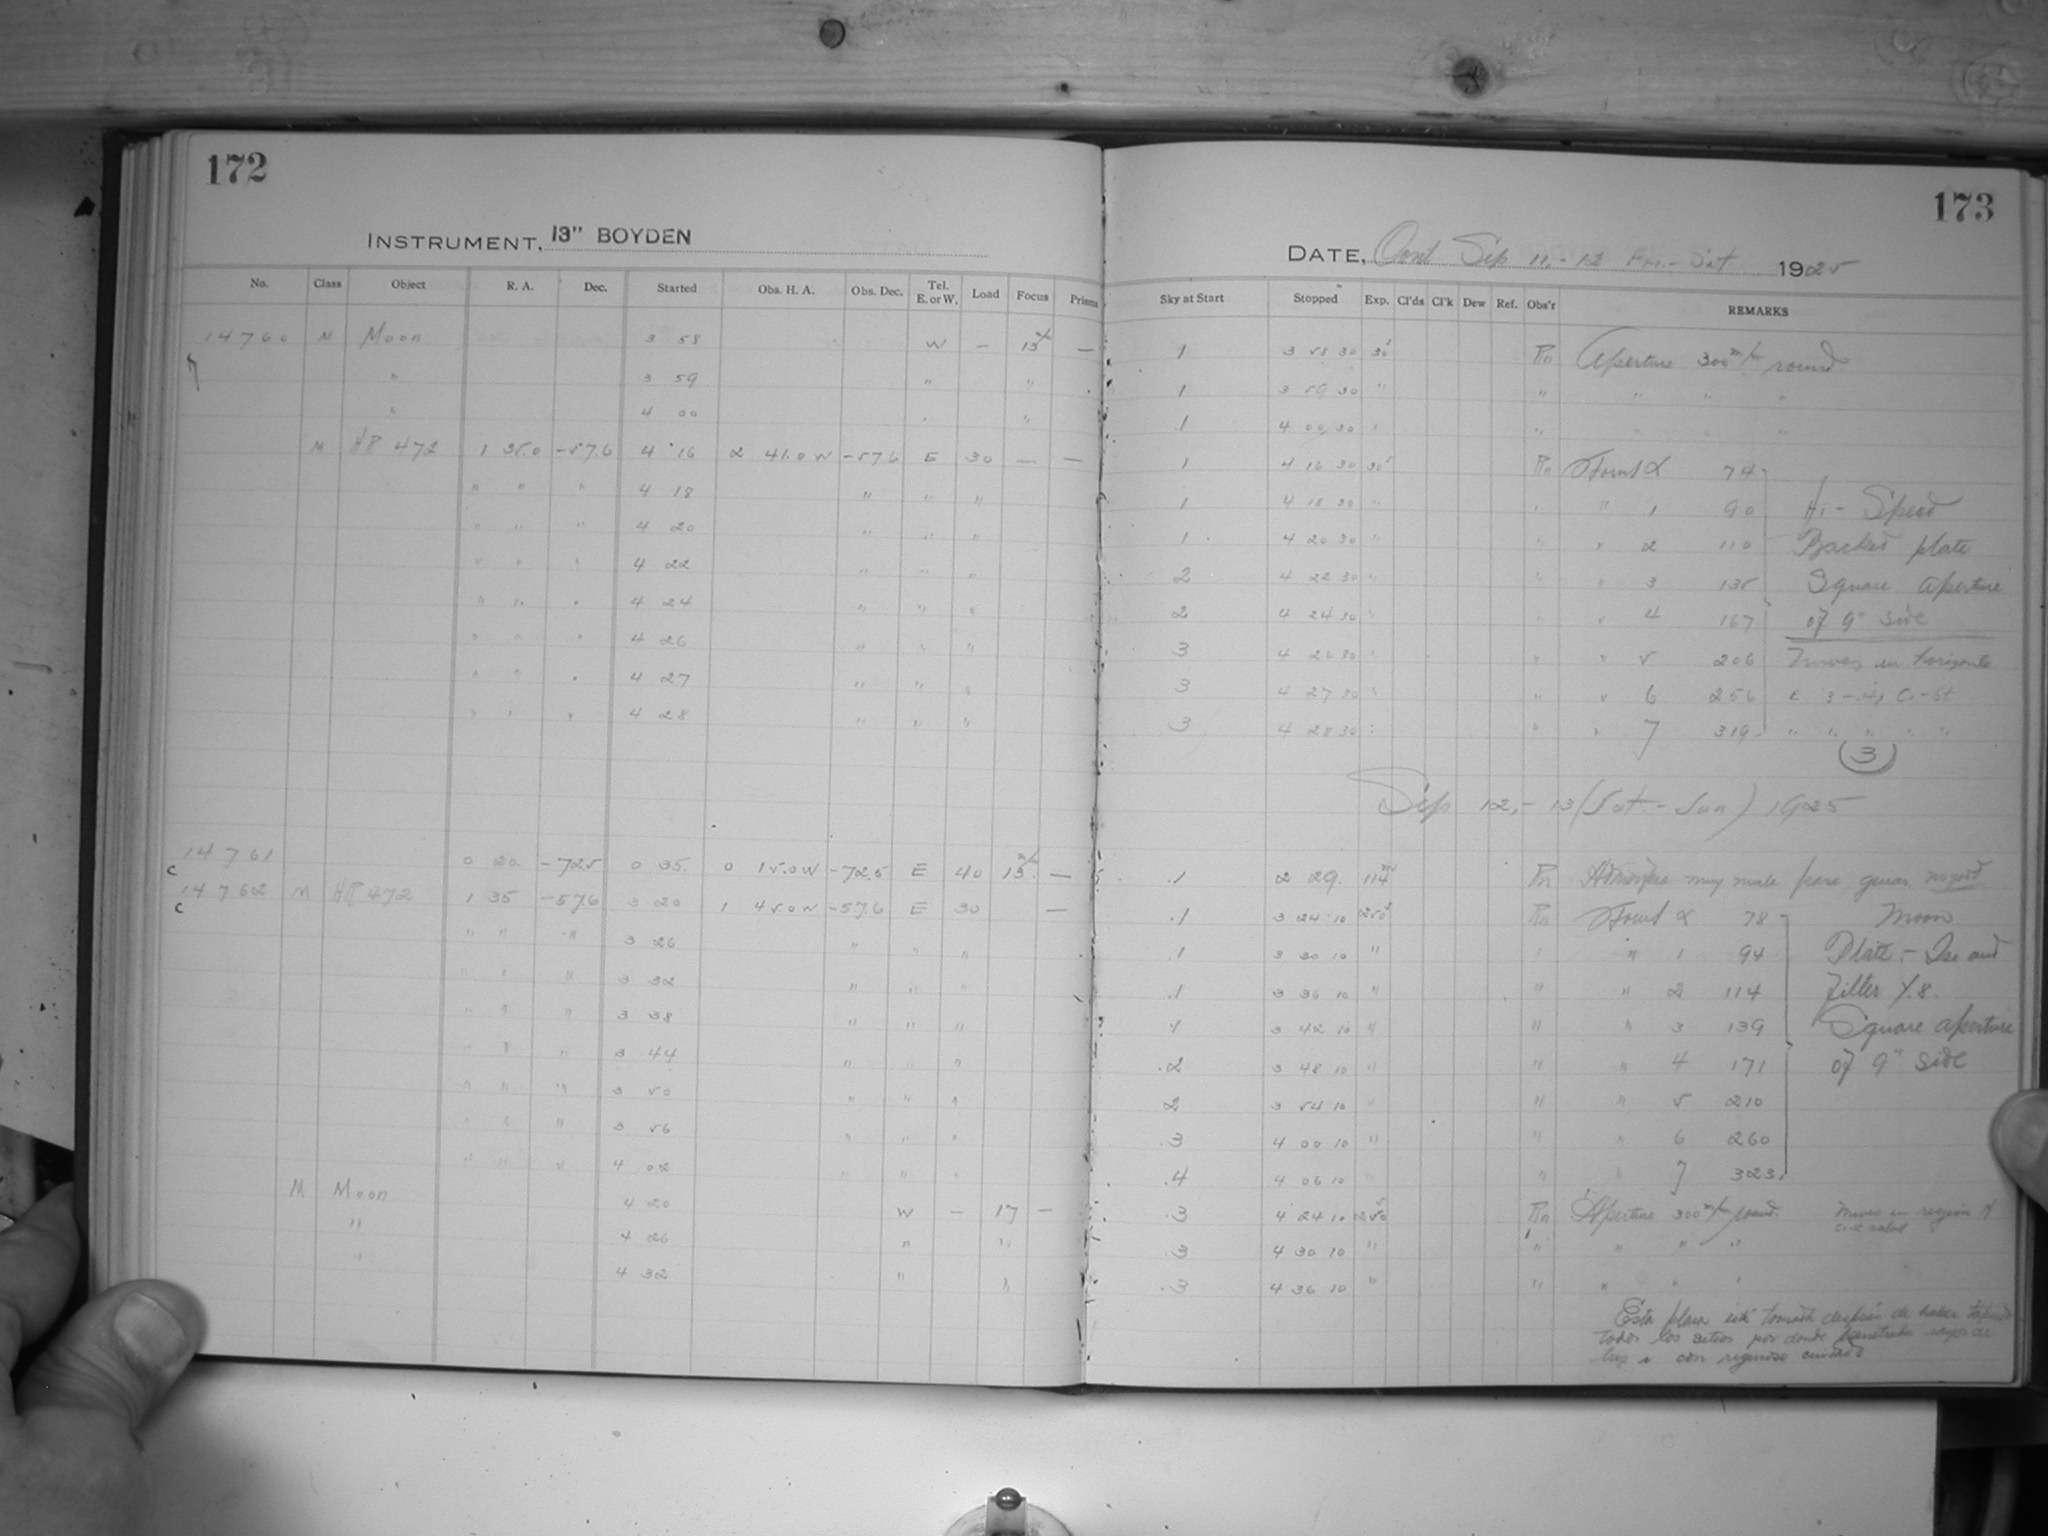 172
INSTRUMENT, 13" BOYDEN
No. Class Object R. A. Dec. Started Obs. H. A. Obs. Dec. Tel. E. or W. Load Focus Prisms
14760 M Moon 3 58 W — 13 —
" 3 59 " "
" 4 00 "
M HR 472 1 35.0 -57.6 4 16 2 41.0 W -57.6 E 30 — —
" " " 4 18 " " "
" " " 4 20 " " "
" " " 4 22 " " "
" " " 4 24 " " "
" " " 4 26 " " "
" " " 4 27 " " "
" " " 4 28 " " "
14761 0 20 -72.5 0 35 0 15.0 W -72.5 E 40 13 —
c
14762 M HR 472 1 35 -57.6 3 20 1 45.0 W -57.6 E 30 —
c
" " " 3 26 " " "
" " " 3 32 " " "
" " " 3 38 " " "
" " " 3 44 " " "
" " " 3 50 " " "
" " " 3 56 " " "
" " " 4 02 " " "
M Moon 4 20 W — 17 —
" 4 26 " "
" 4 32 " "
173
DATE, Cont Sep 11,-12 Fri.-Sat 1925
Sky at Start Stopped Exp. Cl'ds Cl'k Dew Ref. Obs'r REMARKS
1 3 58 30 30s Rn Aperture 300 m/m round
1 3 59 30 " " " " "
1 4 00 30 " " " " "
1 4 16 30 30s Rn 74
1 4 18 30 " " " 1 90 Hi-Speed
1 4 20 30 " " " 2 110 Backed plate
2 4 22 30 " " " 3 135 Square aperture
2 4 24 30 " " " 4 167 of 9" side
3 4 26 30 " " " 5 206 in horizonte
3 4 27 30 " " " 6 256
3 4 28 30 " " " 7 319 " " " " "
(3)
Sep 12,-13 (Sat.-Sun) 1925
1 2 29 114m Rn muy mala para no good
1 3 24 10 250s Rn 78 Moon
1 3 30 10 " " " 1 94 Plate:- Iso and
1 3 36 10 " " " 2 114 Filter
1 3 42 10 " " " 3 139 Square aperture
2 3 48 10 " " " 4 171 of 9" side
2 3 54 10 " " " 5 210
3 4 00 10 " " " 6 260
4 4 06 10 " " " 7 323
3 4 24 10 250s Rn Aperture 300 m/m round. in region
3 4 30 10 " " " " "
3 4 36 10 " " " " "
Esta placa está tomada después de haber tapado
todos los sitios por donde
luz y con riguroso cuidado